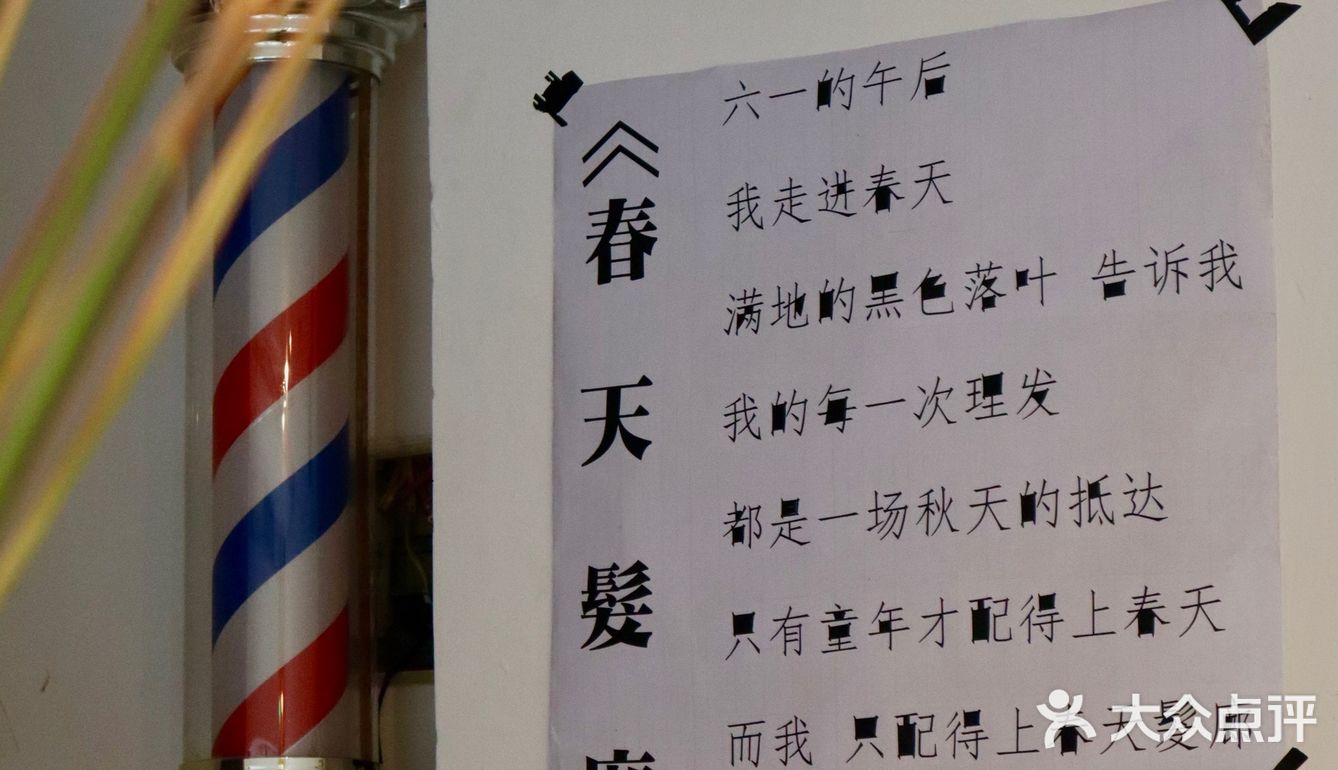 《春天髮
六一的午后
我走进春天
满地的黑色落叶 告诉我
我的每一次理发
都是一场秋天的抵达
只有童年才配得上春天
而我 只配得上春天髮廊
大众点评